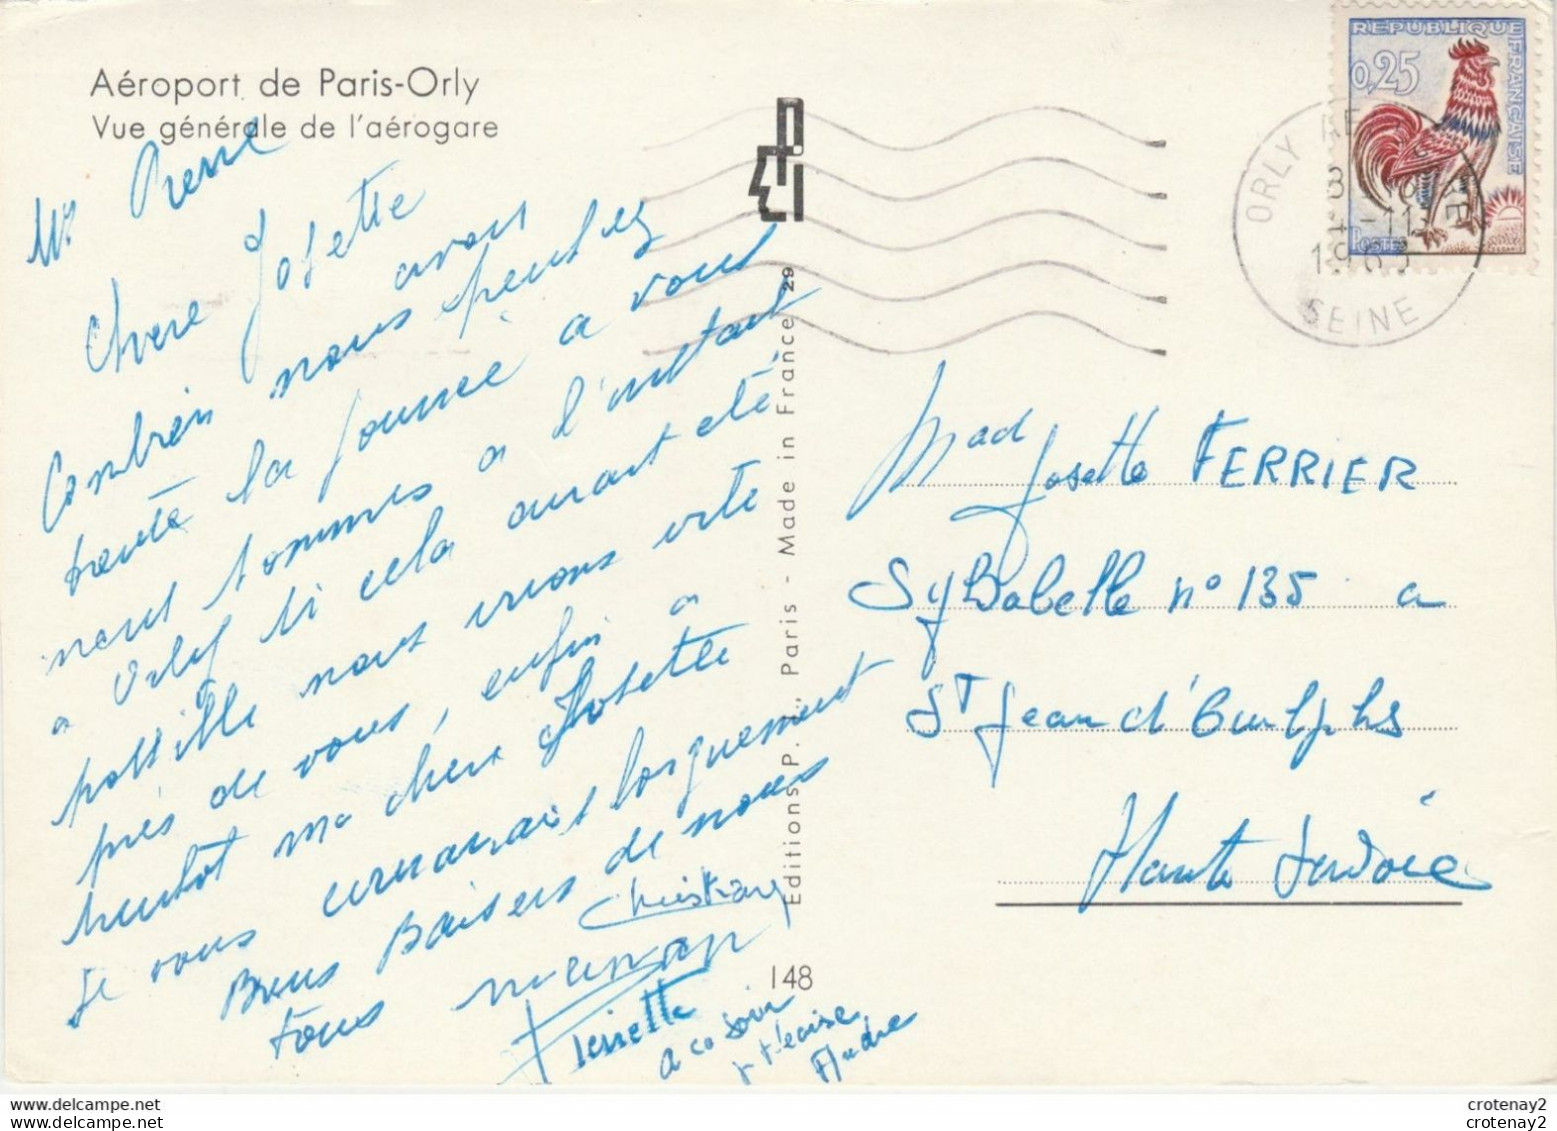 Aéroport de Paris-Orly
Vue générale de l'aérogare
Mr Pierre
Chere Josette
Combien nous avons
pensé
toute la journée a vous
nous sommes a l'instant
a Orly si cela aurait été
possible nous irions vite
près de vous, enfin a
bientot ma chere Josette
Je vous longuement
Bons Baisers de nous
tous
Christian
maman
Pierrette
a ce soir
André
Editions P. Paris - Made in France 29
148
PI
REPUBLIQUE FRANÇAISE
0,25
POSTES
ORLY AE RE
SEINE
Mad
Josette FERRIER
Sylbabelle n° 135 a
St Jean d'
Haute Savoie
delcampe.net
crotenay2
delcampe.net
crotenay2